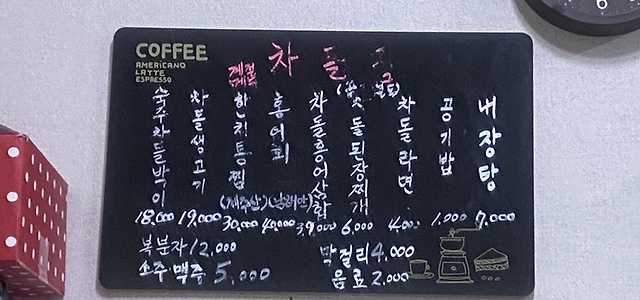 COFFEE
AMERICANO
LATTE
ESPRESSO
계절
차돌
숙주차돌박이
18.000
차돌생고기
19.000
한치통찜
30.000
홍어회
40.000
차돌홍어삼합
39.000
차돌된장찌개
6.000
차돌라면
4.000
공기밥
1.000
내장탕
7.000
복분자 12.000
소주 맥주 5.000
막걸리 4.000
음료 2.000